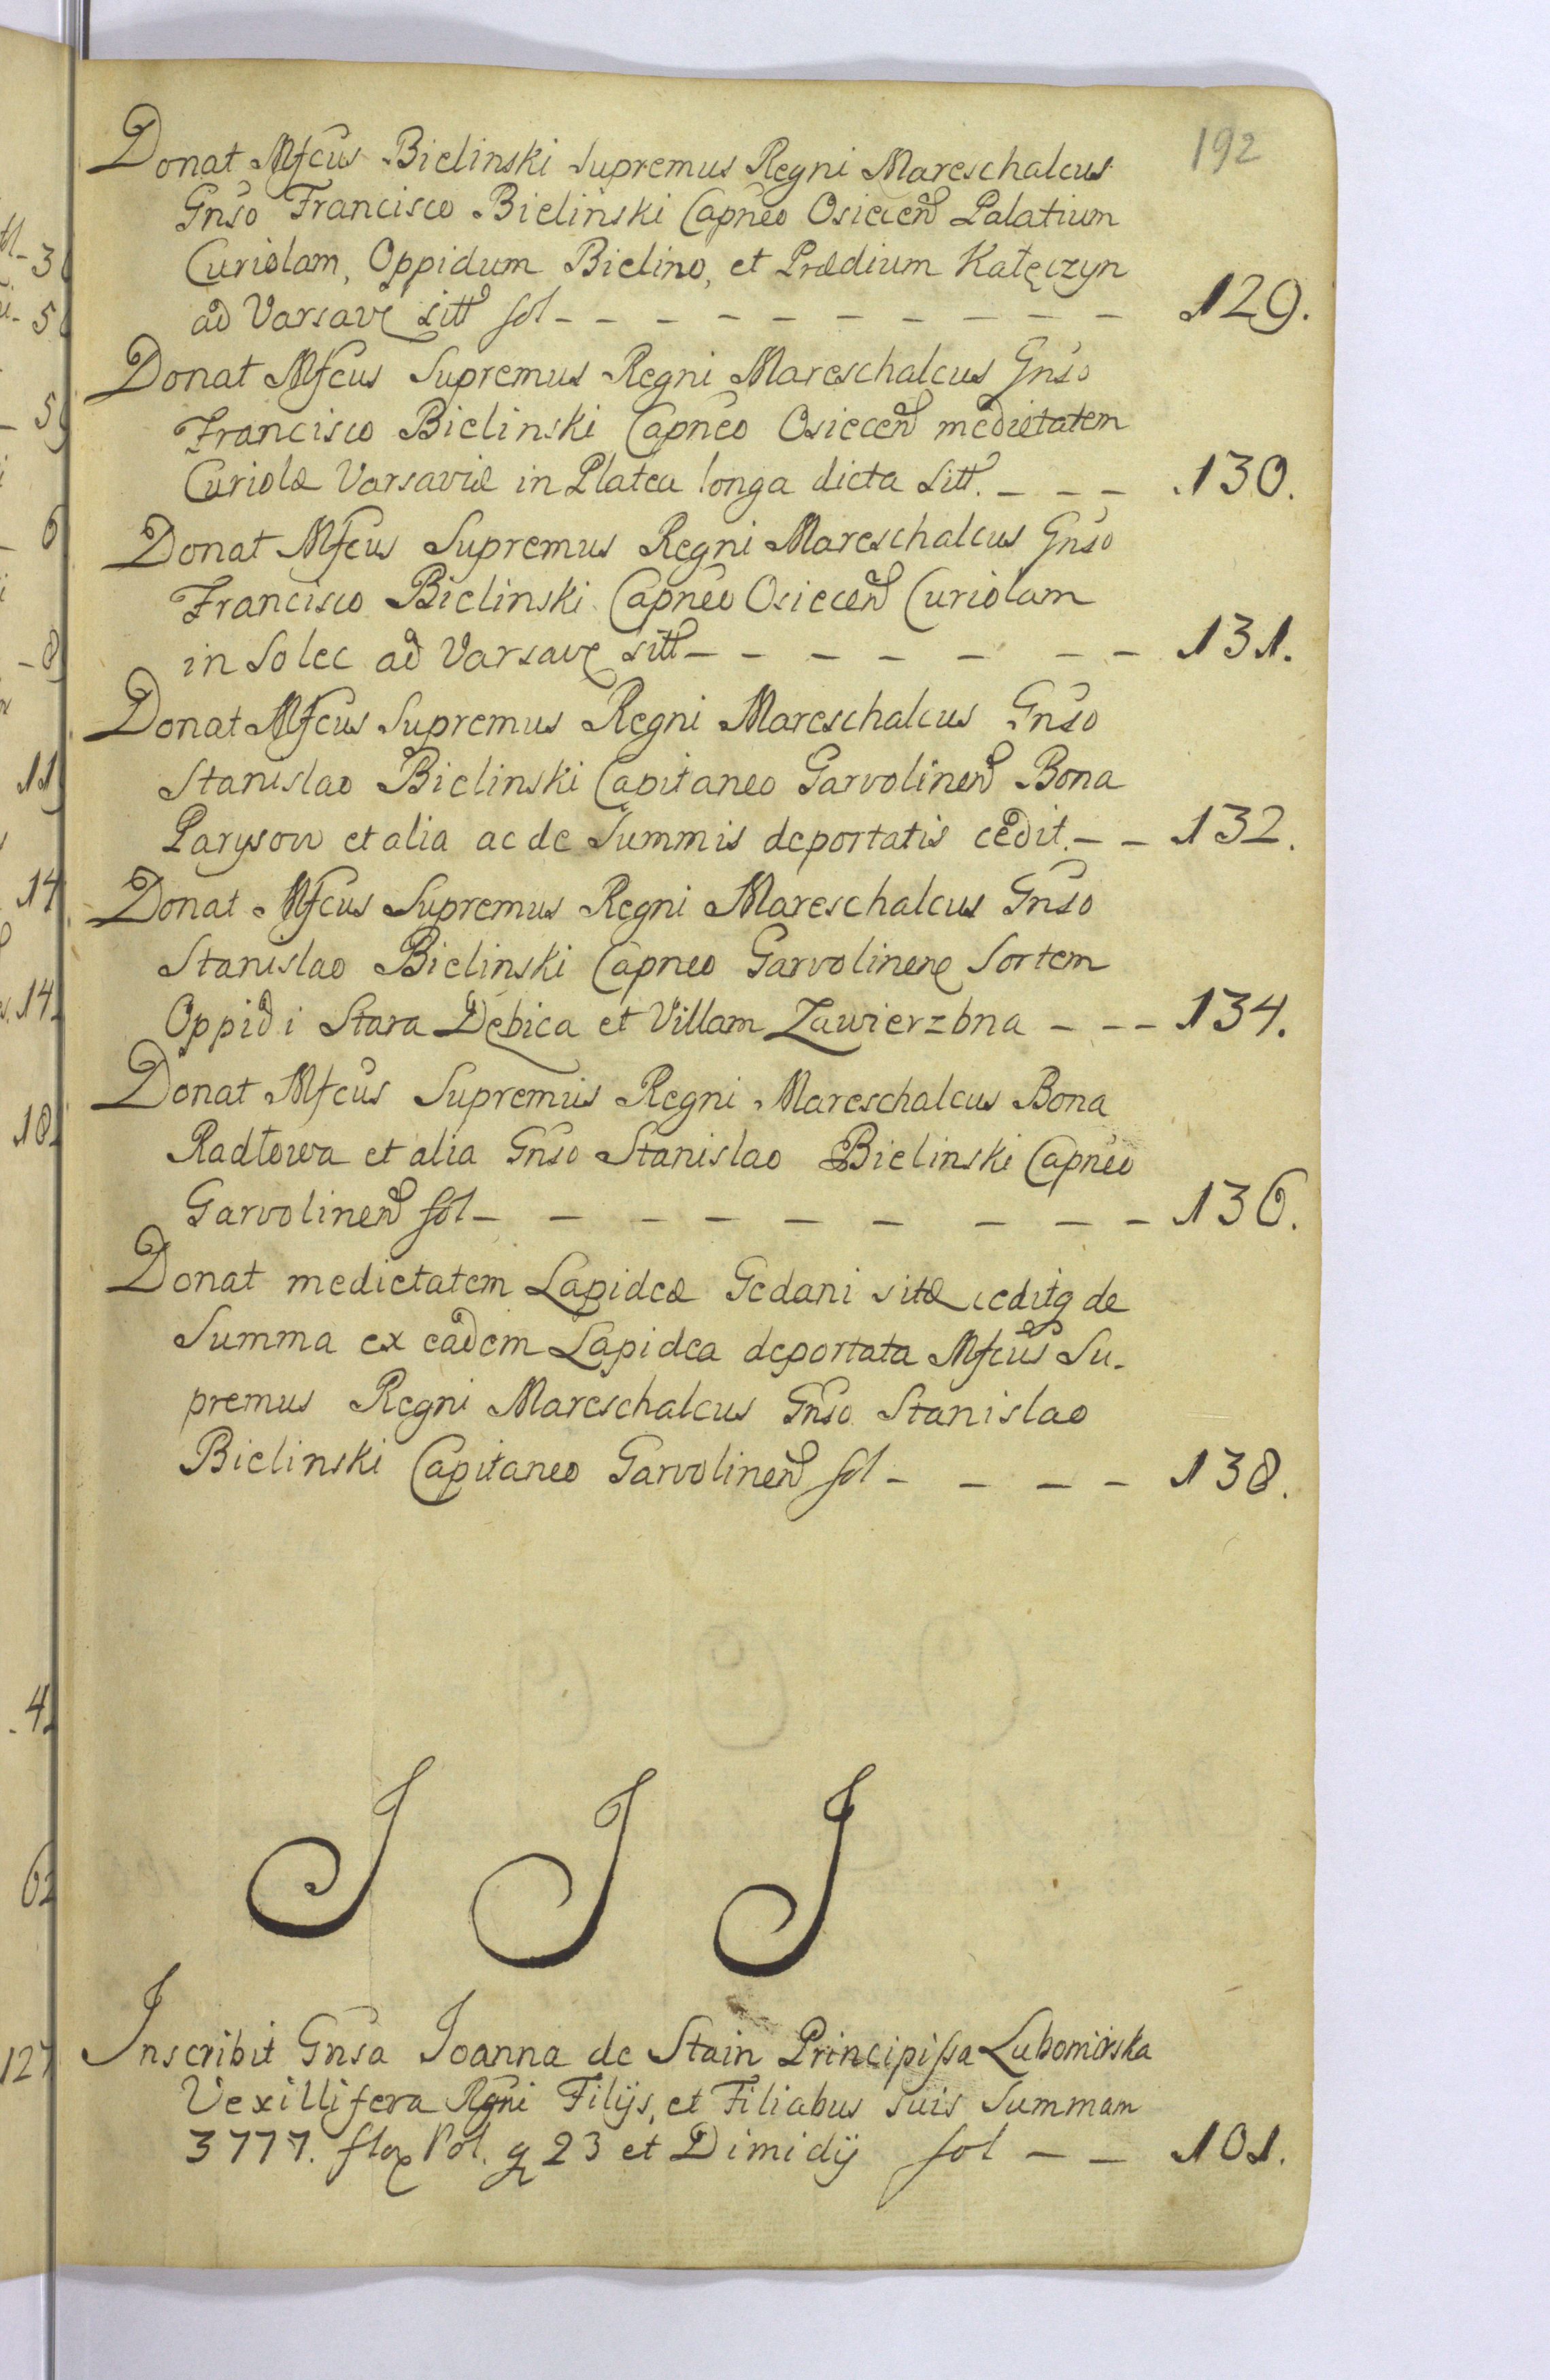 192
Donat Mfcus Bielinski Supremus Regni Mareschalcus
Gnso Francisco Bielinski Capneo Osiecen Palatium
Curiolam, Oppidum Bielino, et Prædium Kałęczyn
ad Varsavę sitt fol - - - - - - - - - - 129.
Donat Mfcus Supremus Regni Mareschalcus Gnso
Francisco Bielinski Capneo Osiecen medietatem
Curiolæ Varsaviæ in Platea longa dicta sitt. - - - 130.
Donat Mfcus Supremus Regni Mareschalcus Gnso
Francisco Bielinski Capneo Osiecen Curiolam
in Solec ad Varsavę sitt - - - - - - - 131.
Donat Mfcus Supremus Regni Mareschalcus Gnso
Stanislao Bielinski Capitaneo Garvolinen Bona
Parysow et alia ac de Summis deportatis cedit. - - 132.
Donat Mfcus Supremus Regni Mareschalcus Gnso
Stanislao Bielinski Capneo Garvolinene Sortem
Oppidi Stara Dębica et Villam Zawierzbna - - - 134.
Donat Mfcus Supremus Regni Mareschalcus Bona
Radłowa et alia Gnso Stanislao Bielinski Capneo
Garvolinen fol - - - - - - - - - 136.
Donat medietatem Lapideæ Gedani sitæ ceditq de
Summa ex eadem Lapidea deportata Mfcus Su-
premus Regni Mareschalcus Gnso Stanislao
Bielinski Capitaneo Garvolinen fol - - - - 138.
J J J
Inscribit Gnsa Joanna de Stain Principissa Lubomirska
Vexillifera Rgni Filijs, et Filiabus suis Summam
3777. flor Pol. g 23 et Dimidij fol - - 101.